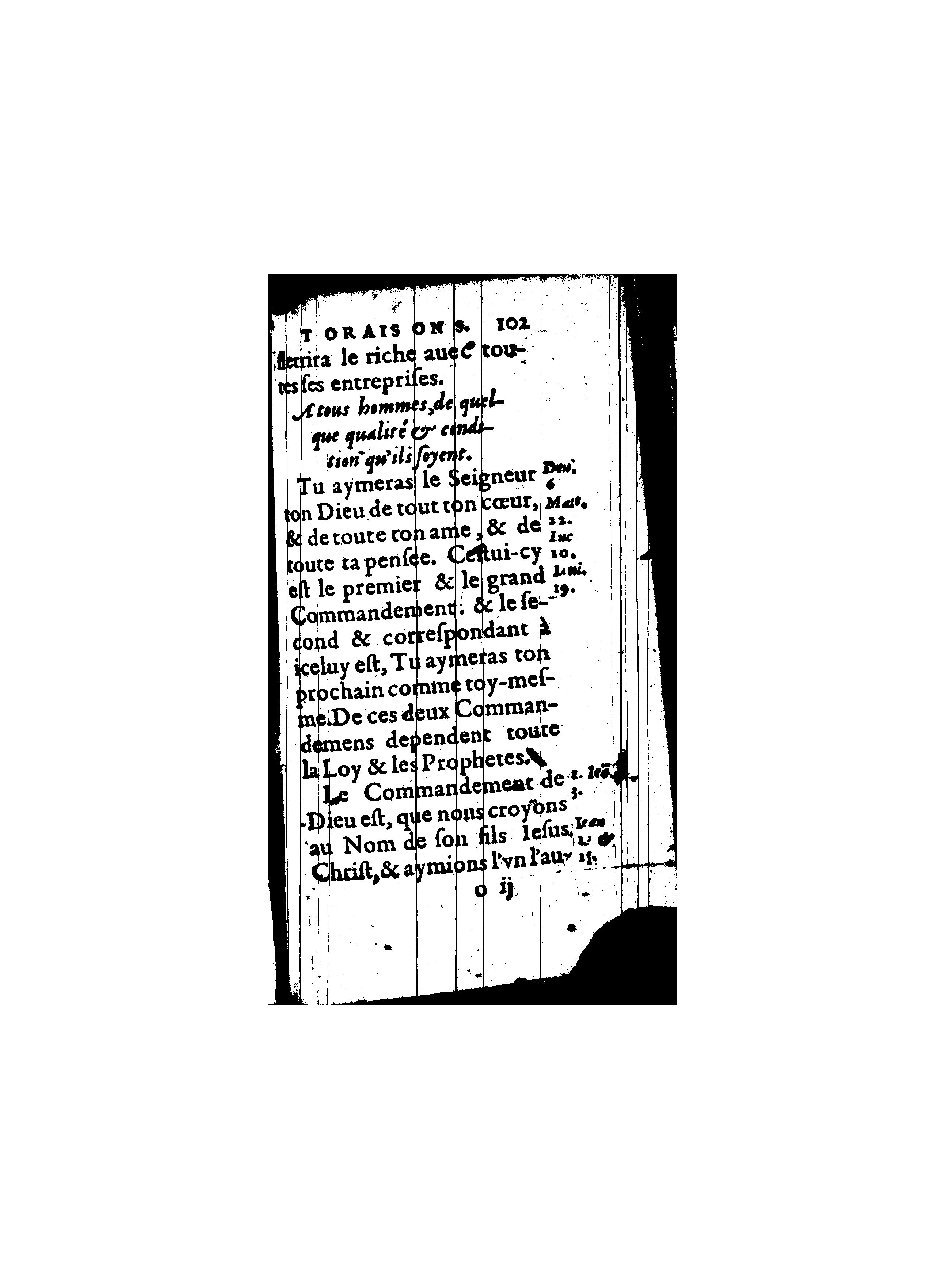 T ORAISONS. 102
fletrira le riche auec tou-
tes ſes entrepriſes.
A tous hommes, de quel-
que qualité & condi-
tion qu'ils ſoyent.
Tu aymeras le Seigneur
ton Dieu de tout ton cœur,
& de toute ton ame, & de
toute ta penſée. Ceſtui-cy
eſt le premier & le grand
Commandement: & le ſe-
cond & correſpondant à
iceluy eſt, Tu aymeras ton
prochain comme toy-meſ-
me. De ces deux Comman-
demens dependent toute
la Loy & les Prophetes.
Le Commandement de
Dieu eſt, que nous croyons
au Nom de ſon fils Ieſus
Chriſt, & aymions l'vn l'au-
o ij
Deu.
6
Matt.
22.
Luc
10.
Leui.
19.
1. Ieã.
3.
Iean
15.